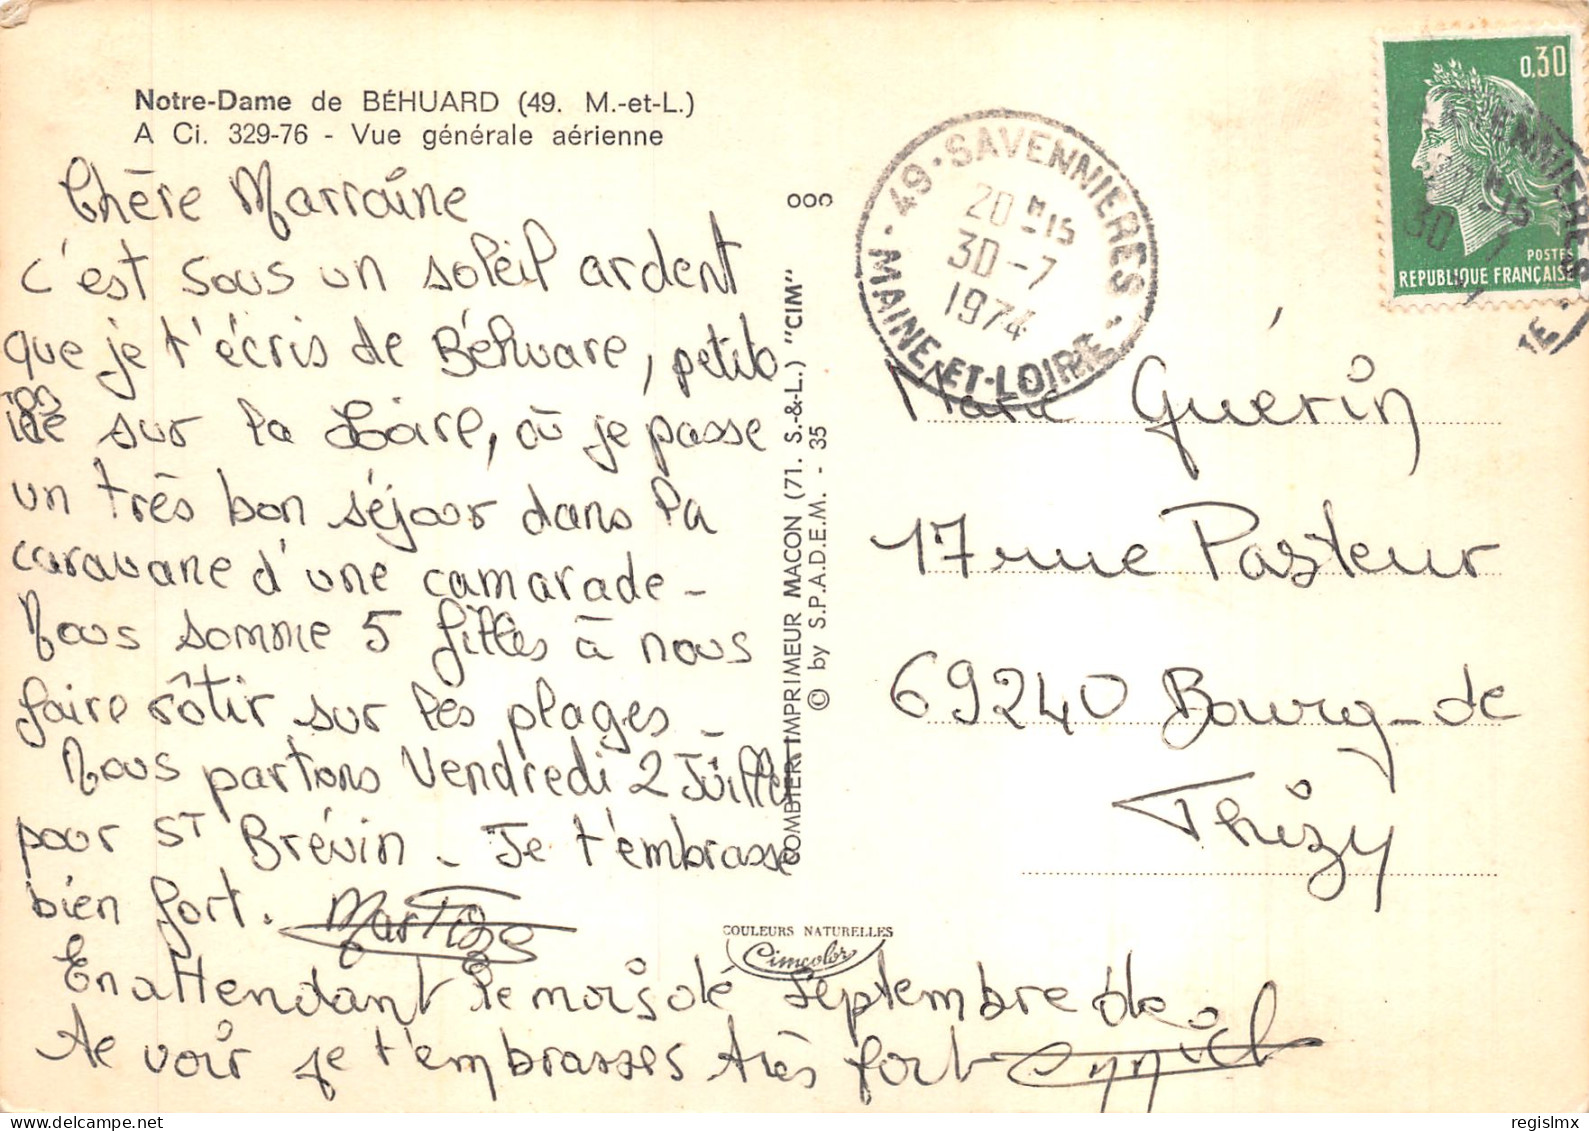 Notre-Dame de BÉHUARD (49. M.-et-L.)
A Ci. 329-76 - Vue générale aérienne
Chère Marraine
c'est sous un soleil ardent
que je t'écris de Béhuare, petite
île sur la Loire, où je passe
un très bon séjour dans la
caravane d'une camarade -
Nous somme 5 filles à nous
faire rôtir sur les plages -
Nous partons Vendredi 2 Juillet
pour ST Brévin - Je t'embrasse
bien fort. Martine
En attendant le mois de Septembre de
te voir je t'embrasses très fort
COMBIER IMPRIMEUR MACON (71. S.-&-L.) "CIM"
© by S.P.A.D.E.M. - 35
COULEURS NATURELLES
Cimcolor
49 - SAVENNIERES -
20 H 15
30 - 7
1974
MAINE-ET-LOIRE
0,30
POSTES
REPUBLIQUE FRANÇAISE
Marie Guérin
17 rue Pasteur
69240 Bourg-de
Thizy
regislmx